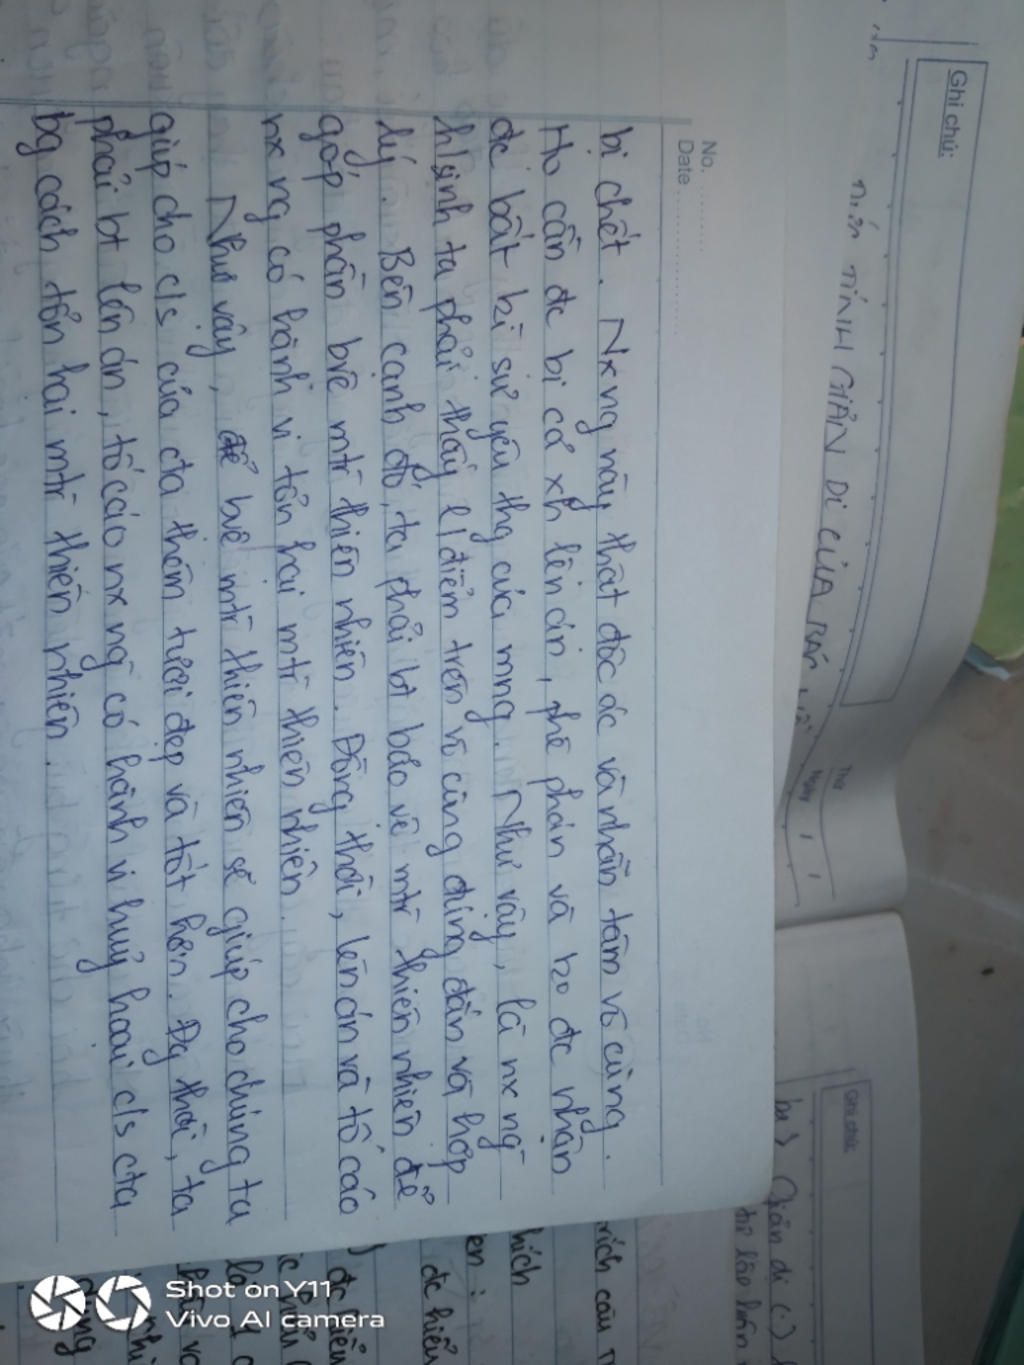 No. ............
Date ....................
bị chết. Nx ng này thật độc ác và nhẫn tâm vô cùng.
Họ cần đc bị cả xh lên án, phê phán và ko đc nhận
đc bất kì sự yêu thg của mng. Như vậy, là nx ng
h/sinh ta phải thấy q/điểm trên vô cùng đúng đắn và hợp
lý. Bên cạnh đó, ta phải bt bảo vệ mtr thiên nhiên để
góp phần bvệ mtr thiên nhiên. Đồng thời, lên án và tố cáo
nx ng có hành vi tổn hại mtr thiên nhiên.
Như vậy, để bvệ mtr thiên nhiên sẽ giúp cho chúng ta
giúp cho c/s của cta thêm tươi đẹp và tốt hơn. Đg thời, ta
phải bt lên án, tố cáo nx ng có hành vi huỷ hoại c/s cta
bg cách tổn hại mtr thiên nhiên.
Ghi chú:
TÍNH GIẢN DỊ CỦA BÁC
Thứ
Ngày / /
Ghi chú:
Giản dị
rích câu
hích
đc hiểu
Shot on Y11
Vivo AI camera